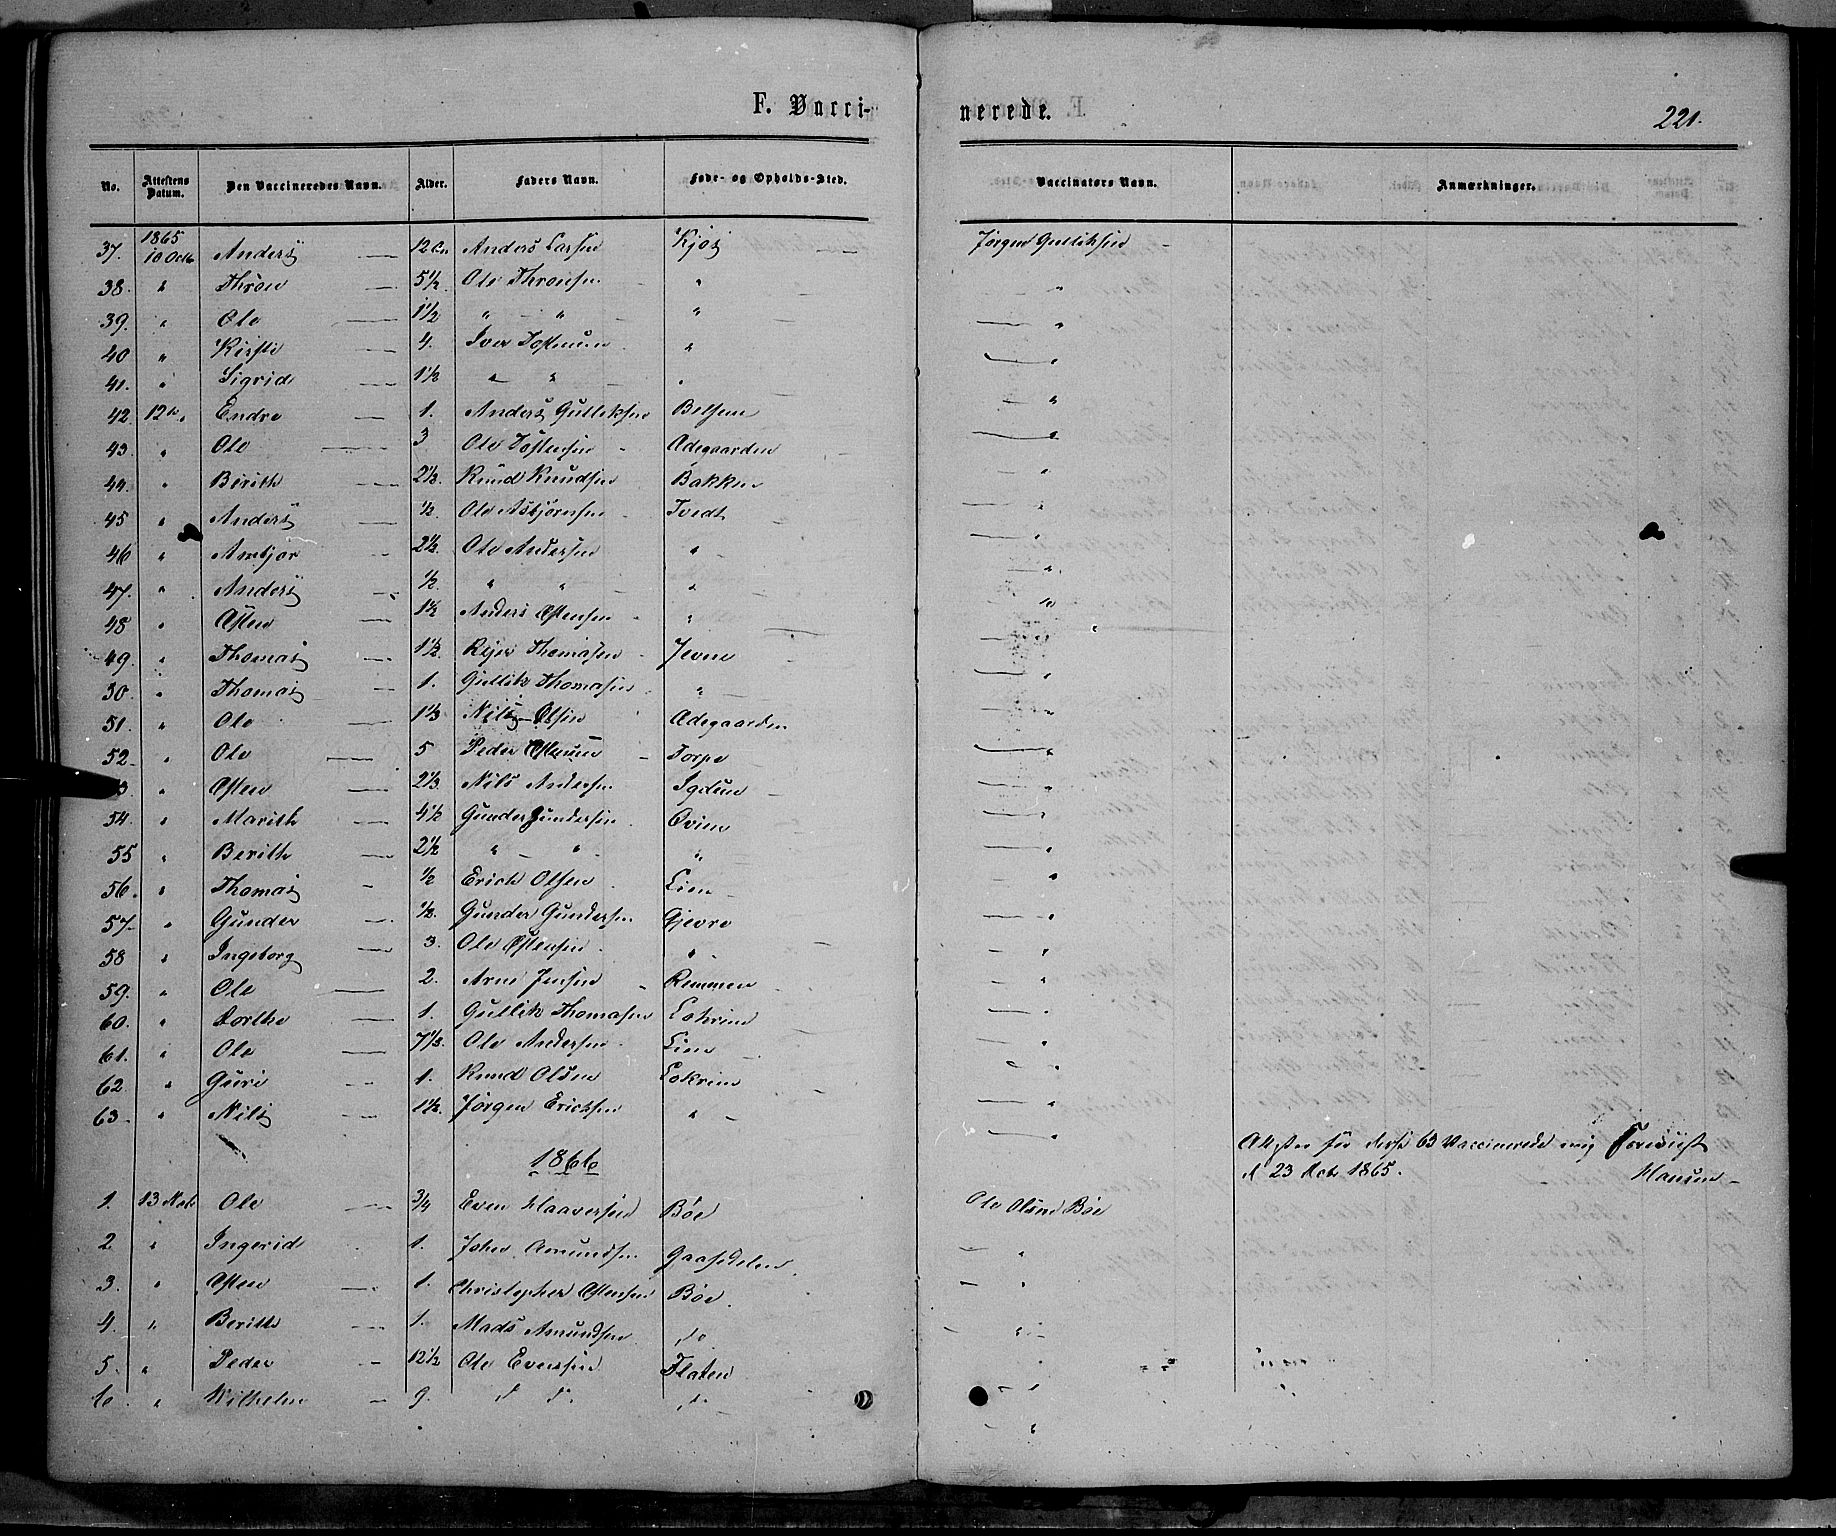 F. Vacci-
nerede.
221.
No. Attestens Datum. Den Vaccineredes Navn. Alder. Faders Navn. Føde- og Opholds-Sted. Vaccinators Navn. Anmærkninger.
1865
37. 10 Octb Anders — Anders Larsen Kjøs — Jørgen Gulliksen
38. " Thron — 5½ Ole Thronsen " — "
39. " Ole — 1½ " — " " — "
40 " Kirsti — 4. Iver " — "
41. " Sigrid — 1½ " " " — "
42. 12te " Endre — 1. Anders Gulliksen — "
43. " Ole — 3 Ole Ødegaarden — "
44. " Berith — 2⅓ Knud Knudsen Bakken "
45 " Anders — ½ Ole Asbjørnsen Tvedt — "
46 " Ambjør — 2½ Ole Andersen " — "
47. " Anders — ½ " " " — "
48 " Østen — 1½ Anders Østensen " — "
49. " Thomas — 1½ Thomasen Jevne — "
30. " Thomas — 1. Gullik Thomasen " — "
51. " Ole — 1⅓ Nils Olsen Ødegaarden — "
52. " Ole — 5 Peder Torpe — "
" Østen — 2⅓ Nils Andersen — "
54. " Marith — 4½ Gunder Gundersen — "
55 " Berith — 2½ " — " " — "
56. " Thomas — ½ Erich Olsen Lien — "
57. " Gunder — ½ Gunder Gundersen Gjevre — "
58 " Ingeborg — 3. Ole Østensen " — "
59. " Ole — 2. Arne Jensen — "
60. " Dorthe — 1. Gullik Thomasen — "
61. " Ole — 7⅓ Ole Andersen Lien — "
62 " Guri — 1. Knud Olsen — "
63. " Nils — 1½ Jørgen Ericksen " — "
1866
63 Vaccinerede
d 23 Octr 1865. Hansen
1. 13 Ole ¾ Even Haaversen Bøe Ole Olsen Bøe
2. " Ingerid 1. John Amundsen Gaasedelen — "
3. " Østen — 1. Christopher Østensen Bøe — "
4. " Berith — 1. Mads Amundsen do — "
5. " Peder — 12½ Ole Evensen Flaten — "
6. " Wilhelm — 9. d d. do — "